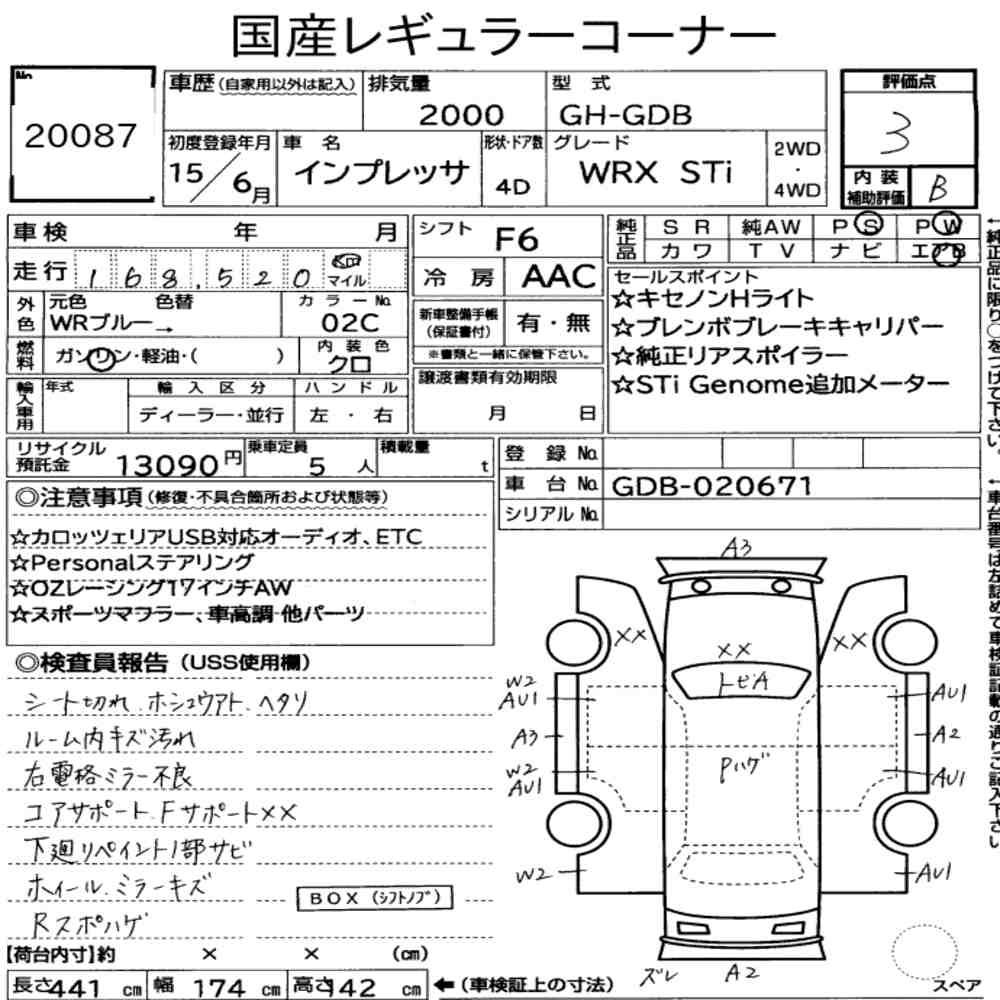 国産レギュラーコーナー
No. 20087
車歴(自家用以外は記入) 排気量 2000 型式 GH-GDB
評価点 3
初度登録年月 15/6月 車名 インプレッサ 形状・ドア数 4D グレード WRX STi 2WD・4WD
内装補助評価 B
車検 年 月
シフト F6
純正品 SR 純AW PS PW
カワ TV ナビ エアB
走行 168,520 マイル
冷房 AAC
セールスポイント
☆キセノンHライト
☆ブレンボブレーキキャリパー
☆純正リアスポイラー
☆STi Genome追加メーター
外色 元色 WRブルー→ 色替 カラーNo. 02C
新車整備手帳(保証書付) 有・無
※書類と一緒に保管下さい。
燃料 ガソリン・軽油・( ) 内装色 クロ
譲渡書類有効期限
月 日
輸入車用 年式 輸入区分 ハンドル
ディーラー・並行 左・右
リサイクル預託金 13090円 乗車定員 5人 積載量 t
登録No.
車台No. GDB-020671
シリアルNo.
←純正品に限り○をつけて下さい。
←車台番号は左詰めで車検証記載の通りご記入下さい
◎注意事項(修復・不具合箇所および状態等)
☆カロッツェリアUSB対応オーディオ、ETC
☆Personalステアリング
☆OZレーシング17インチAW
☆スポーツマフラー、車高調 他パーツ
◎検査員報告(USS使用欄)
シート切れ.ホシュウアト.ヘタリ
ルーム内キズ汚れ
右電格ミラー不良
コアサポート.Fサポート××
下廻リペイント1部サビ
ホイール.ミラーキズ
Rスポハゲ
BOX(シフトノブ)
A3
×× ×× ××
トビA
W2 AU1 AU1
A3 A2
Pハゲ
W2 AU1 AU1
W2 AU1
ズレ A2
スペア
【荷台内寸】約 × × (cm)
長さ441cm 幅174cm 高さ142cm ←(車検証上の寸法)